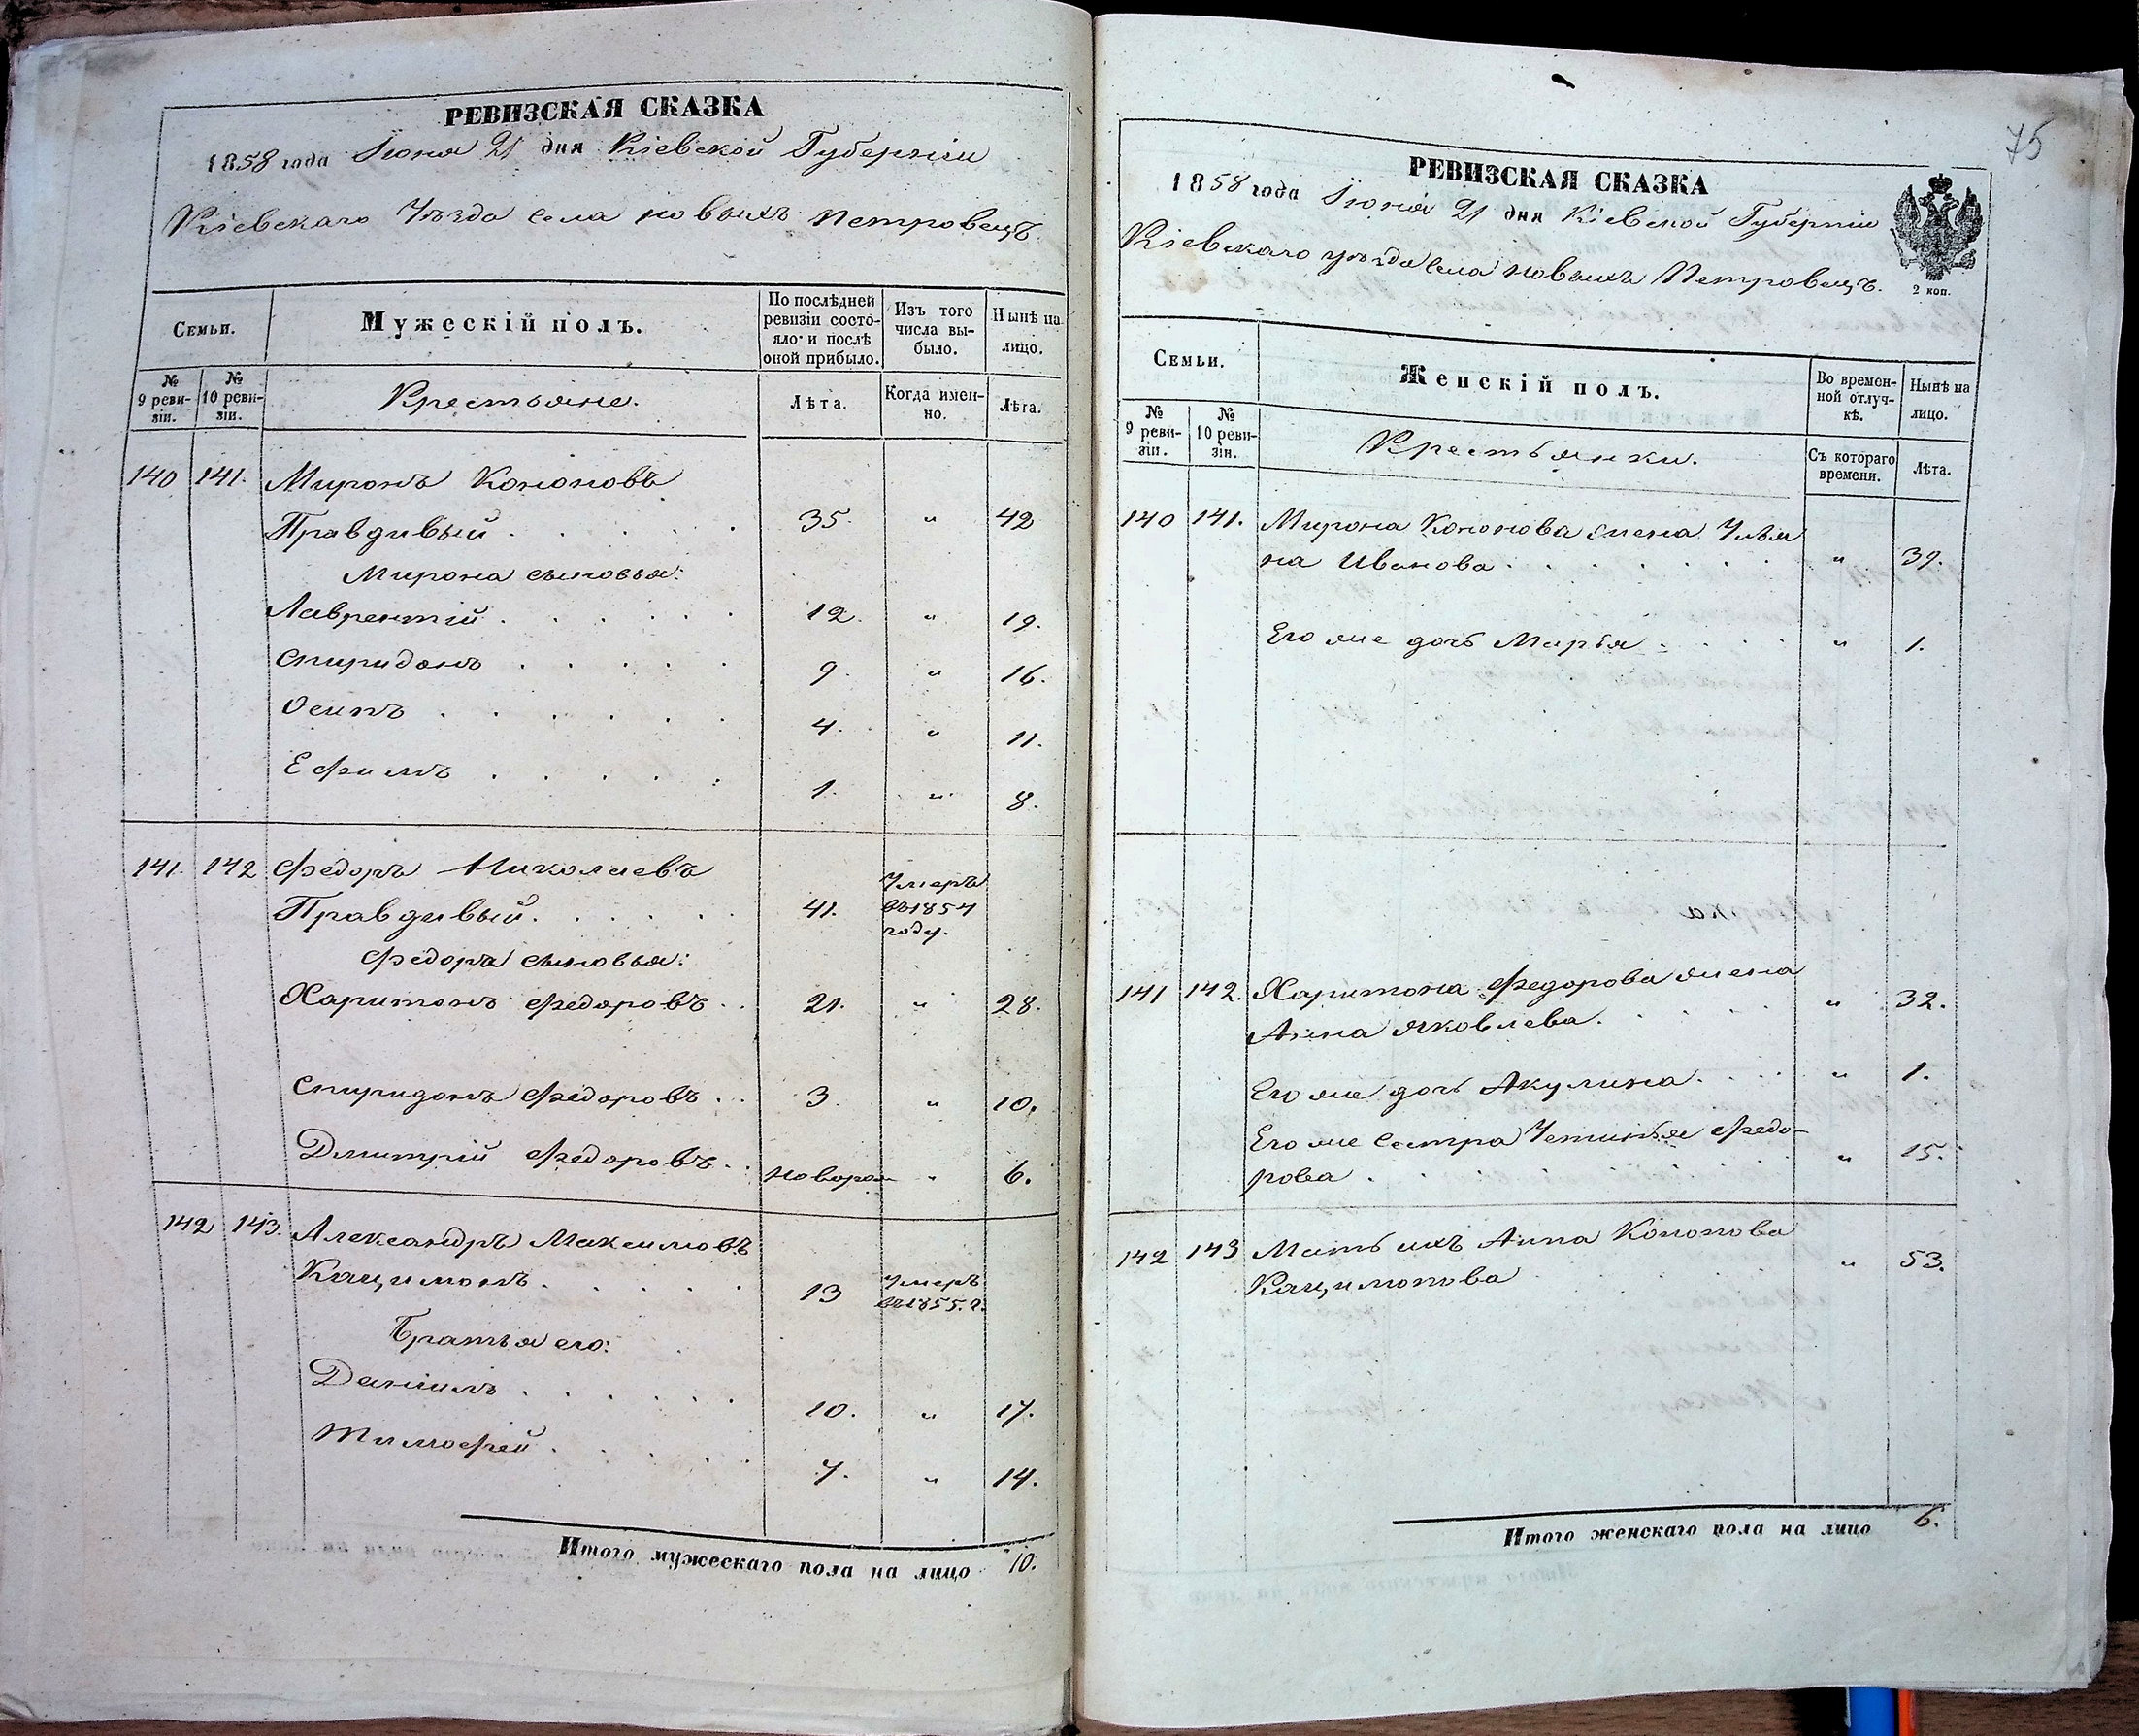 РЕВИЗСКАЯ СКАЗКА
1858 года Іюня 21 дня Кіевской Губерніи
Кіевскаго Уѣзда села новыхъ Петровецъ
Семьи.
Мужескій полъ.
По послѣдней ревизіи состо-
яло и послѣ оной прибыло.
Изъ того числа вы-
было.
Нынѣ на лицо.
№ 9 реви-
зіи.
№ 10 реви-
зіи.
Крестьяне.
Лѣта.
Когда имен-
но.
Лѣта.
140 141. Миронъ Кононовъ
Правдивый . . . . . 35. " 42
Мирона сыновья:
Лаврентій . . . . . 12. " 19.
Спиридонъ . . . . . 9. " 16.
Осипъ . . . . . . 4. " 11.
Ефимъ . . . . . 1. " 8.
141. 142 Федоръ Николаевъ
Правдивый. . . . . . 41. Умеръ
въ 1854
году.
Федора сыновья:
Харитонъ Федоровъ . . 21. " 28.
Спиридонъ Федоровъ . . 3. " 10.
Дмитрій Федоровъ . . новорож " 6.
142 143. Александръ Максимовъ
Кацимонъ . . . . . 13 Умеръ
въ 1855. г.
Братья его:
Даніилъ . . . . . . 10. " 17.
Тимофей . . . . . 7. " 14.
Итого мужескаго пола на лицо 10.
75
РЕВИЗСКАЯ СКАЗКА
1858 года Іюня 21 дня Кіевской Губерніи
Кіевскаго уѣзда села новыхъ Петровецъ.
2 коп.
Семьи.
Женскій полъ.
Во времен-
ной отлуч-
кѣ.
Нынѣ на лицо.
№ 9 реви-
зіи.
№ 10 реви-
зін.
Крестьянки.
Съ котораго времени.
Лѣта.
140 141. Мирона Кононова жена Улья
на Иванова . . . . . . . " 39.
Его же дочь Марья . . . . " 1.
141 142. Харитона Федорова жена
Анна Яковлева. . . . . " 32.
Его же дочь Акулина. . . . " 1.
Его же сестра Устинья Федо-
рова . . . . . . " 15.
142 143 Мать ихъ Анна Кононова
Кацимонова " 53.
Итого женскаго пола на лицо 6.